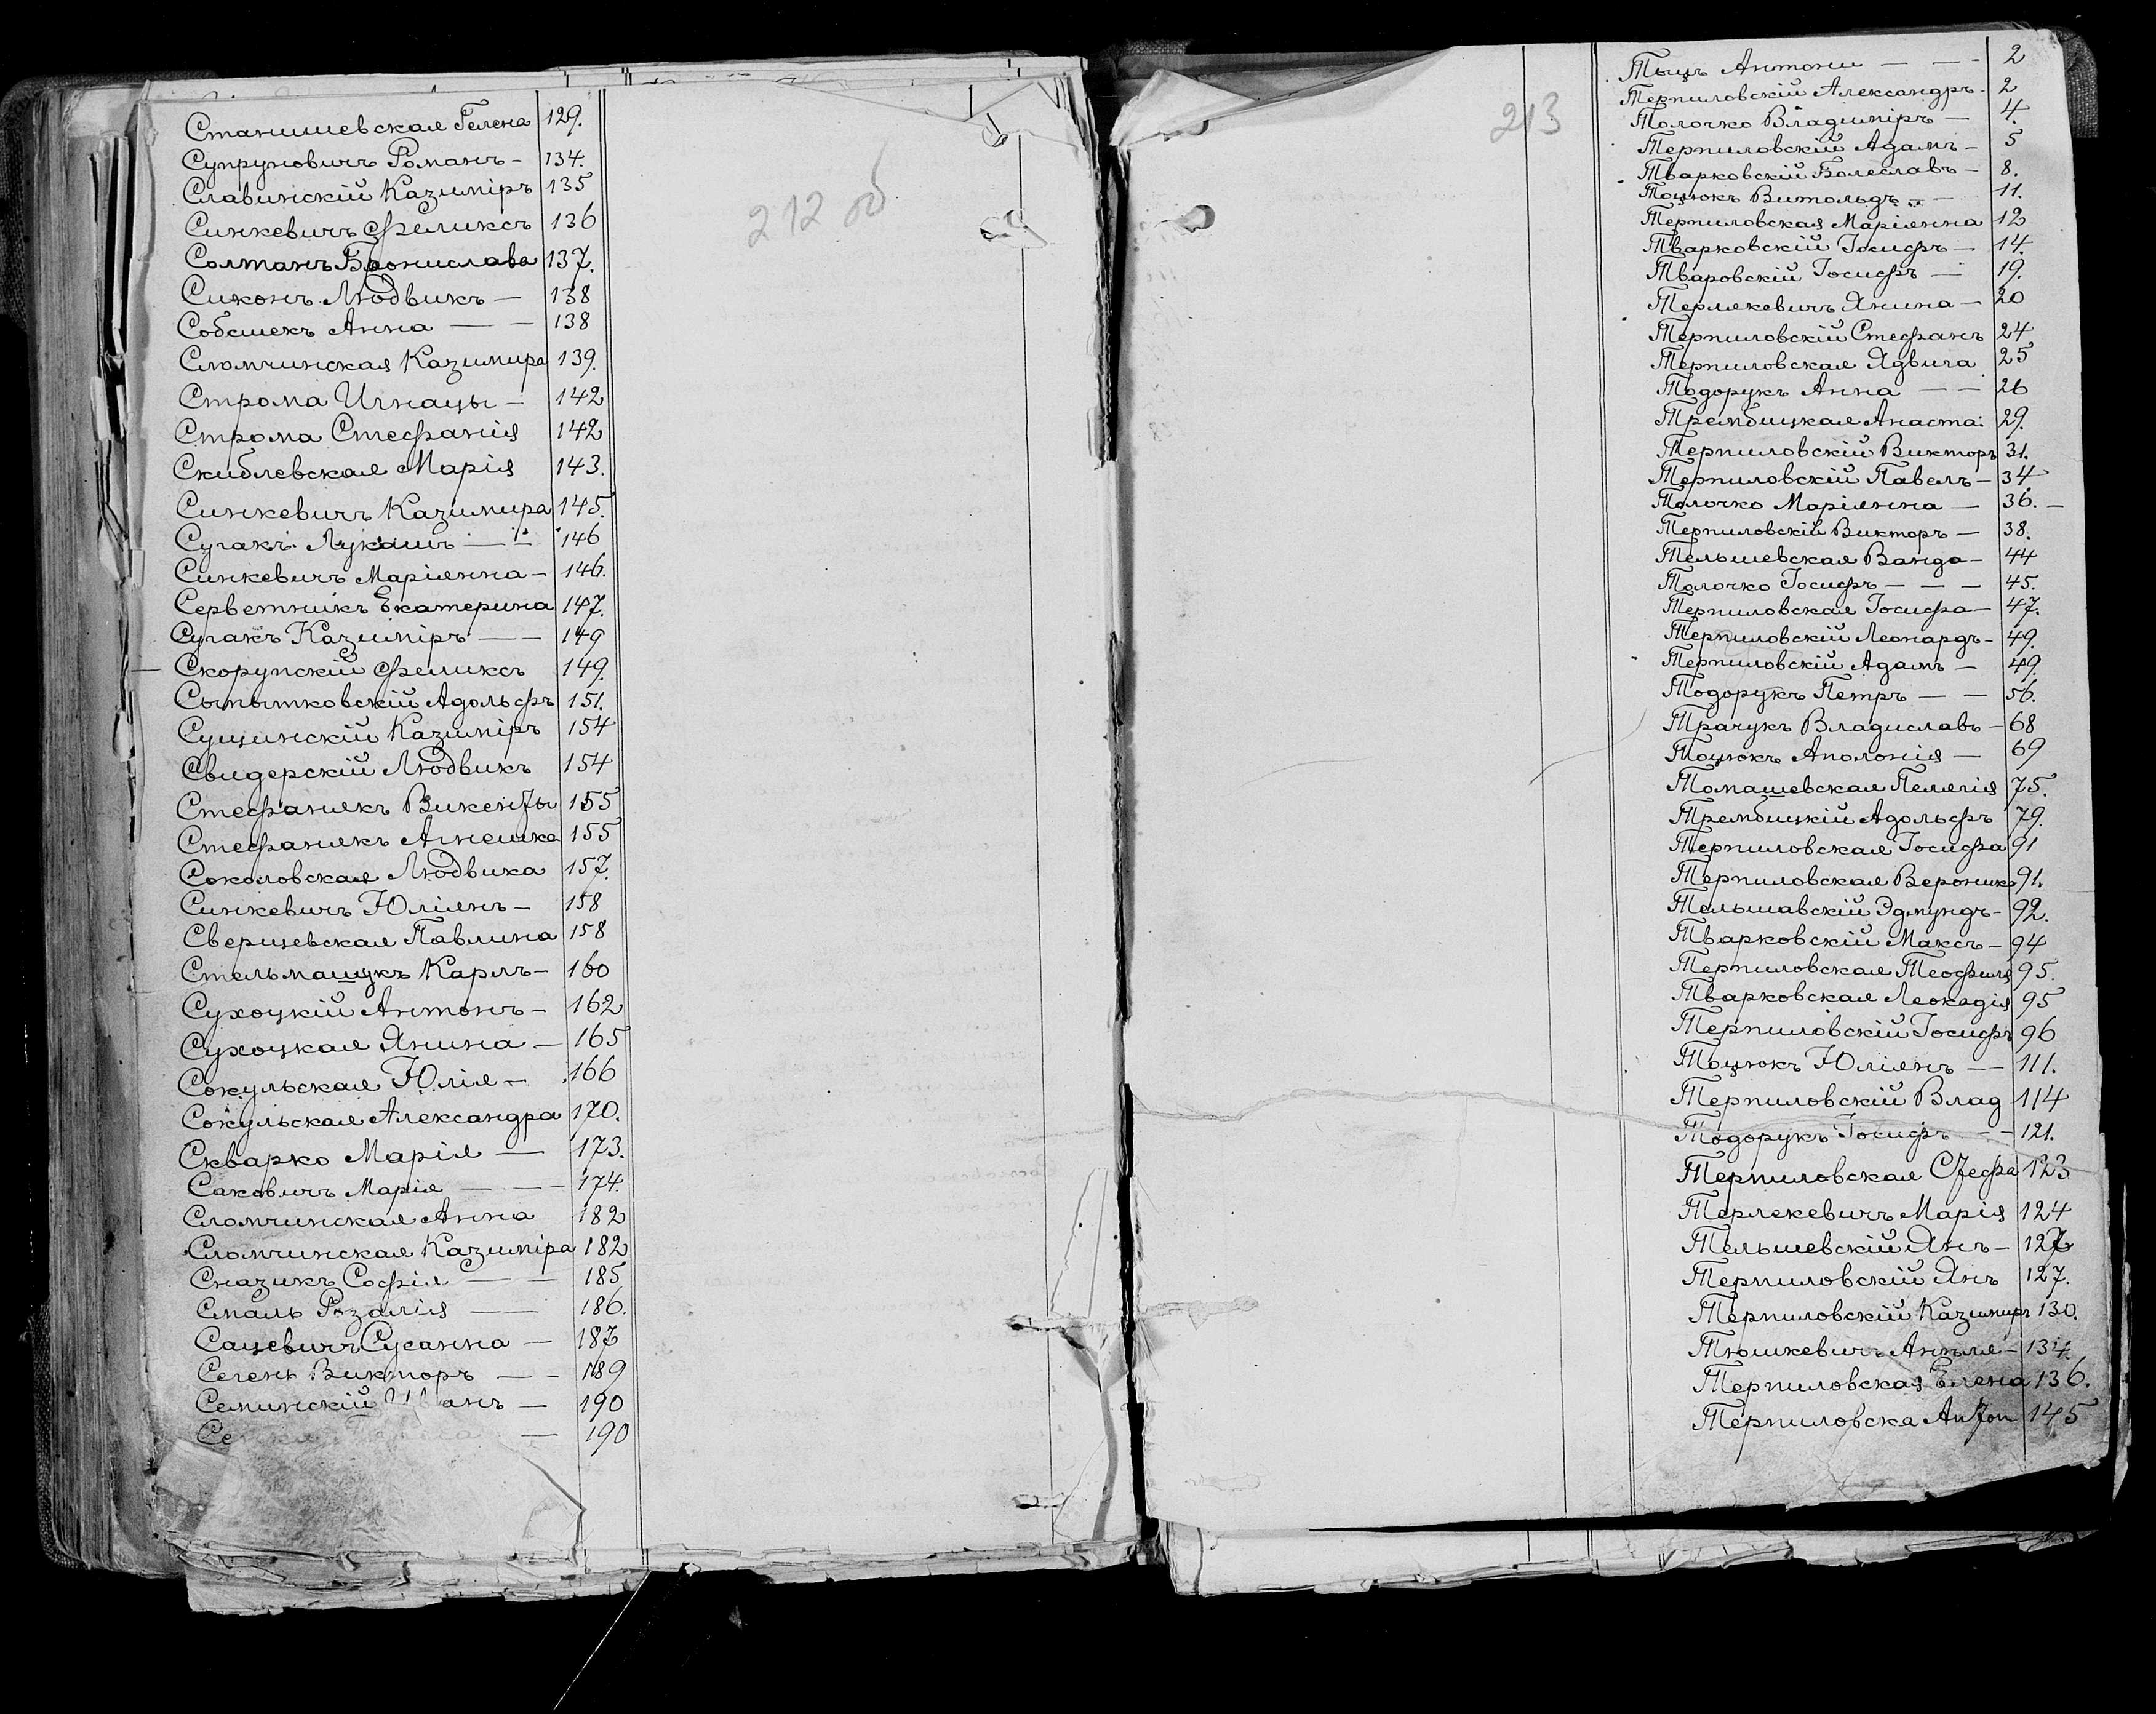 Станишевская Гелена 129.
Супруновичъ Романъ - 134.
Славинскій Казиміръ 135
Синкевичъ Феликсъ 136
Солтанъ Бронислава 137.
Сиконъ Людвикъ — 138
Собешекъ Анна — — 138
Сломчинская Казимира 139.
Строма Игнацы — 142
Строма Стефанія 142
Скиблевская Марія 143.
Синкевичъ Казимира 145.
Сугакъ Лукашъ — — 146
Синкевичъ Маріянна — 146.
Серветникъ Екатерина 147.
Сугакъ Казиміръ — — 149
Скорупскій Феликсъ 149.
Сыпытковскій Адольфъ 151.
Сущинскій Казиміръ 154
Свидерскій Людвикъ 154
Стефанякъ Викенты 155
Стефанякъ Агнешка 155
Соколовская Людвика 157.
Синкевичъ Юліянъ — 158
Сверщевская Павлина 158
Стельмащукъ Карлъ — 160
Сухоцкій Антонъ — 162
Сухоцкая Янина — 165
Сокульская Юлія — 166
Сокульская Александра 170.
Скварко Марія — 173.
Саковичъ Марія — — 174.
Сломчинская Анна 182
Сломчинская Казиміра 182
Сназикъ Софія — — 185
Смаль Розалія — — 186.
Сацевичъ Сусанна — 187
Сегень Викторъ — — 189
Семинскій анъ — 190
190
212 об
213
Тыцъ Антони — — - 2
Терпиловскій Александръ. 2
Толочко Владиміръ — 4.
Терпиловскій Адамъ — 5
Тварковскій Болеславъ — 8.
Тоцюкъ Витольдъ — 11.
Терпиловская Маріянна 12
Тварковскій Іосифъ — 14.
Тваровскій Іосифъ — 19.
Терлекевичъ Янина — 20
Терпиловскій Стефанъ 24
Терпиловская Ядвига 25
Тодорукъ Анна — — 26
Трембицкая Анаста: 29.
Терпиловскій Викторъ 31.
Терпиловскій Павелъ — 34
Толочко Маріянна — 36. —
Терпиловскій Викторъ — 38.
Тельшевская Ванда — 44
Толочко Іосифъ — — — 45.
Терпиловская Іосифа — 47.
Терпиловскій Леонардъ — 49.
Терпиловскій Адамъ — 49.
Тодорукъ Петръ — — 56.
Трачукъ Владиславъ — 68
Тоцюкъ Аполонія — 69
Томашевская Пелягія 75.
Трембицкій Адольфъ 79.
Терпиловская Іосифа 91
Терпиловская Вероника 91.
Тельшавскій Эдмундъ — 92.
Тварковскій Максъ — 94
Терпиловская Теофиля 95.
Тварковская Леокадія 95
Терпиловскій Іосифъ 96
Тоцюкъ Юліянъ — — 111.
Терпиловскій Влад 114
Тодорукъ Іосифъ — — 121.
Терпиловская Стефа 123
Терлекевичъ Марія 124
Тельшевскій Янъ — 127
Терпиловскій Янъ 127.
Терпиловскій Казимиръ 130.
Тюшкевичъ Анъля — 134.
Терпиловская Елена 136.
Терпиловска Антон 145